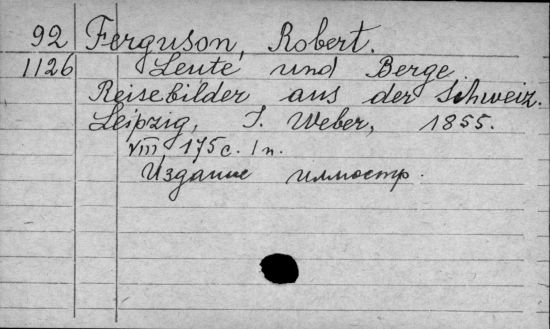 92 Ferguson, Robert.
1126 Leute und Berge.
Reisebilder aus der Schweiz.
Leipzig, J. Weber, 1855.
VIII, 175 c. 1 n.
Издание иллюстр.